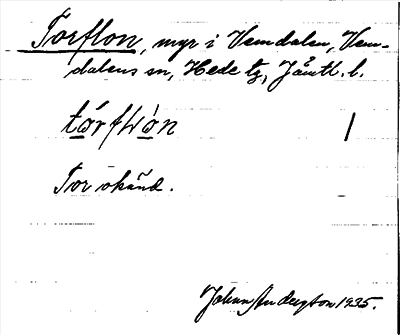 Torflon, myr i Vemdalen, Vem-
dalens sn, Hede tg, Jämtl. l.
tórflὼn |
Tor okänd.
Johan Andersson 1935.